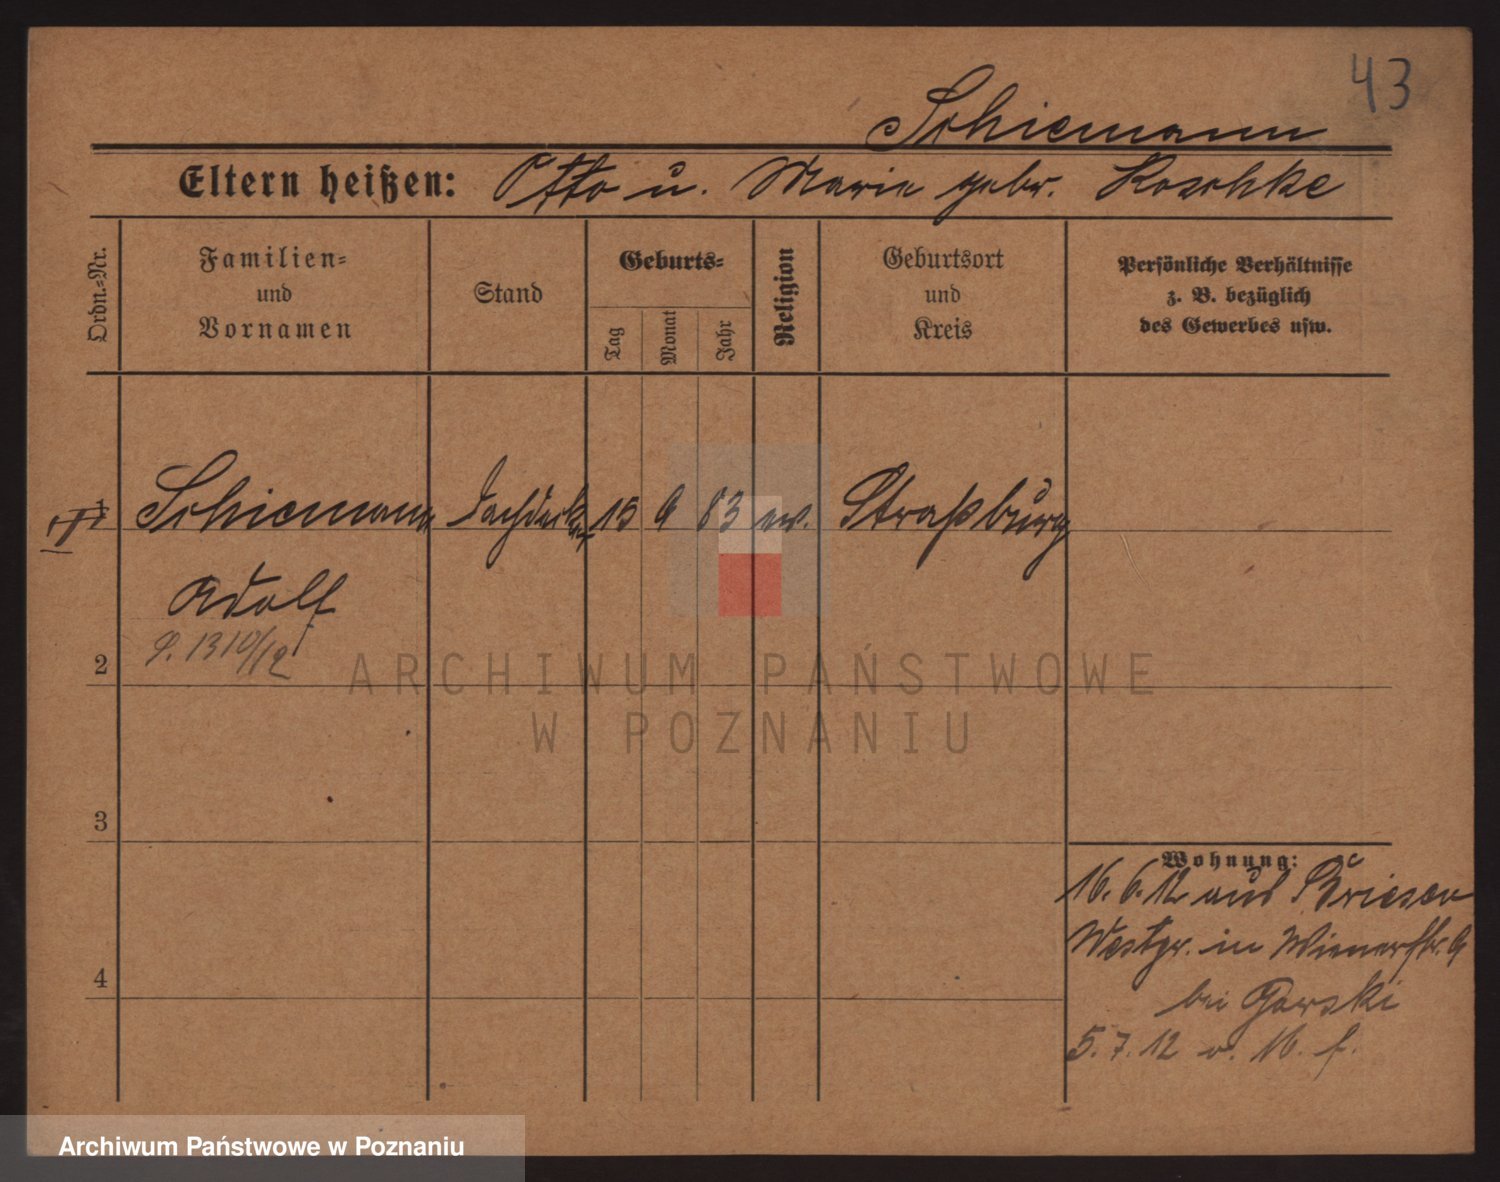 43
Schiemann
Eltern heißen: Otto u. Marie gebr. Koschke
Ordn.-Nr.
Familien-
und
Vornamen
Stand
Geburts-
Tag
Monat
Jahr
Religion
Geburtsort
und
Kreis
Persönliche Verhältnisse
z. B. bezüglich
des Gewerbes usw.
1 Schiemann Dachdecker 15 9 83 ev. Straßburg
Adolf
1310/12
2
3
4
Wohnung:
16.6.12 aus Briesen
Westpr. in Wienerstr. 9
bei Gorski
5.7.12 v. 16.
ARCHIWUM PAŃSTWOWE
W POZNANIU
Archiwum Państwowe w Poznaniu